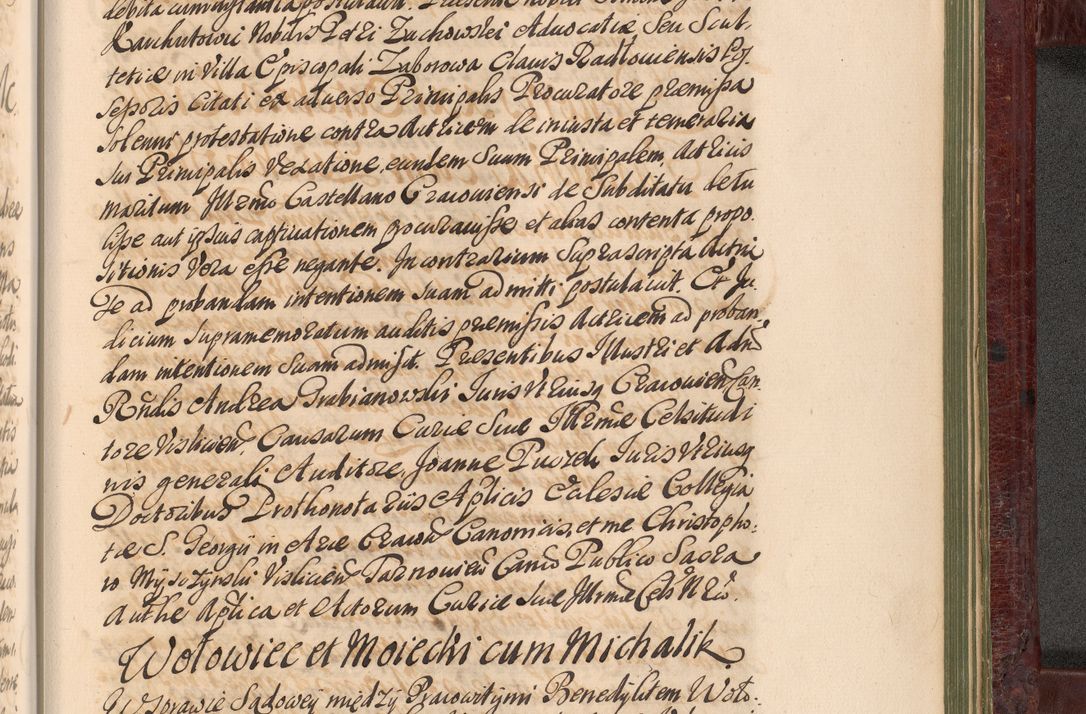 Karchutowic Nobilis Petri Zuchowski Advocatiæ Seu Scul-
tetiæ in Villa Episcopali Zaborowa Clavis Radloviensis Pos-
sessoris Citati ex adverso Principalis Procuratore præmissa
solenni protestatione contra Actricem de iniusta et temeraria
sui Principalis Vexatione, eundem Suum Principalem, Actricis
maritum Illrmo Castellano Cracoviensi de Subditatu detu
lisse aut ipsius captivationem procuravisse et alias contenta propo
sitionis Vera esse negante. In contrarium Suprascripta Actri
ce ad probandam intentionem suam admitti postulavit. Et Ju
dicium supramemoratum auditis præmissis Actricem ad proban
dam intentionem Suam admisit. Præsentibus Illustri et Adm
Rndis Andrea Grabianowski Juris Utriusq Cracovien Can
tore Vislicien, Causarum Curiæ Suæ Illrmæ Celsitudi
nis generali Auditore, Joanne Puczek Juris Utriusq
Doctoribus Prothonotariis Aplicis Eclesiæ Collegia
tæ S. Georgii in Arce Cracow Canonicis, et me Christopho
ro Myszczynski Vislicien Tarnovien Canco Publico Sacra
Authe Aplica et Actorum Curiæ Suæ Illrmæ Cels Nrio.
Wołowiec et Moiecki cum Michalik
W Sprawie Sądowey między Pracowitymi Benedyktem Woło-